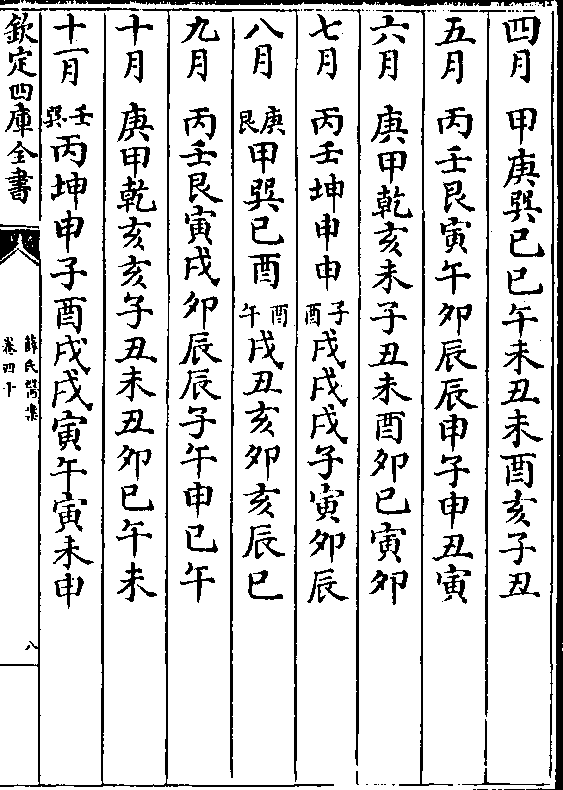 四月 甲庚巽巳巳午未丑未酉亥子丑
五月 丙壬艮寅午夘辰辰申子申丑寅
六月 庚甲乾亥未子丑未酉夘巳寅夘
七月 丙壬坤申申子酉戌戌戌子寅夘辰
八月 庚艮甲巽巳酉酉午戌丑亥夘亥辰巳
九月 丙壬艮寅戌夘辰辰子午申巳午
十月 庚甲乾亥亥子丑未丑夘巳午未
十一月 壬巽丙坤申子酉戌戌寅午寅未申
欽定四庫全書
薛氏醫案
卷四十
八